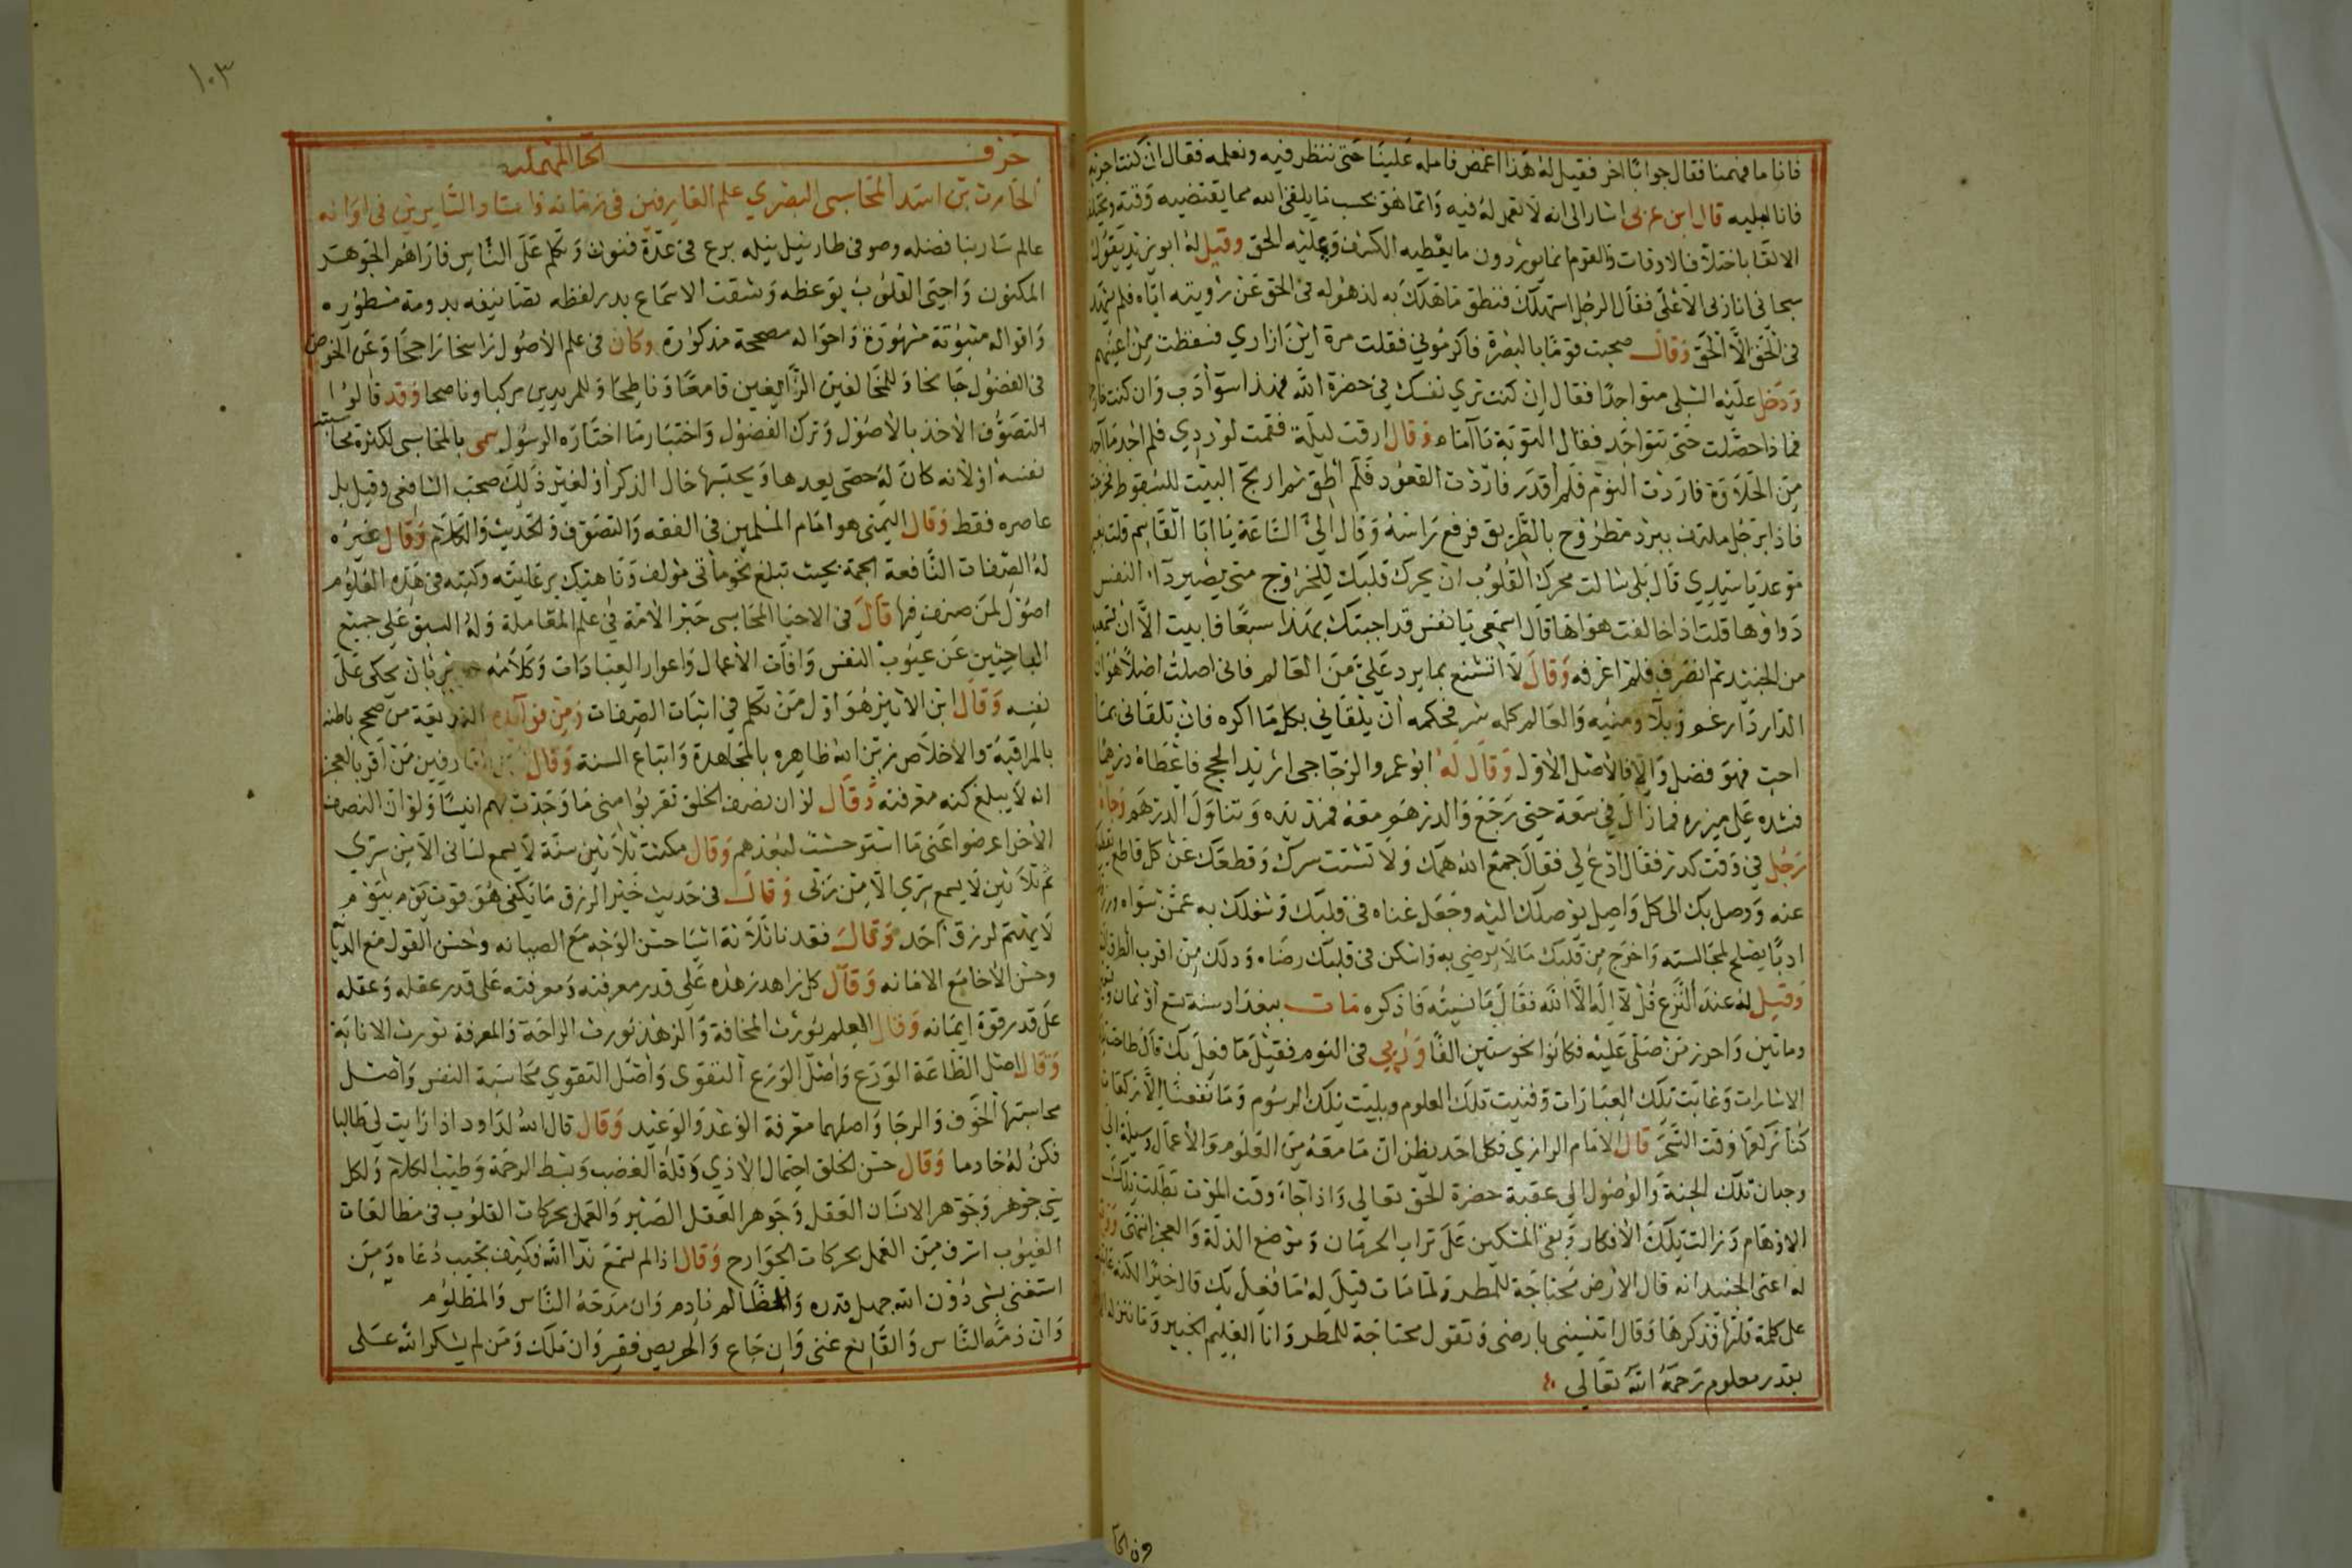 فانا ما فهمنا فقال جوابًا اخر فقيل له هذا اغمض فامله علينا حتى ننظر فيه ونعلمه فقال ان كنت اجريه
فانا امليه قال ابن عربى اشار الى انه لا تعمل له فيه وانما هو بحسب ما يلقى الله مما يقتضيه وقته ويختلف
الالقا باختلاف الاوقات والقوم انما يوردون ما يعطيه الكشف ويمليه الحق وقيل له ابو يزيد يقول
سبحانى انا ربى الاعلى فقال الرجل استهلك فنطق ما هلك به لذهوله فى الحق عن رؤيته اياه فلم يشهد
فى الحق الا الحق وقال صحبت قوما بالبصرة فاكرمونى فقلت مرة اين ازارى فسقطت من اعينهم
ودخل عليه الشبلى متواجدا فقال ان كنت ترى نفسك فى حضرة الله فهذا سوء ادب وان كنت خارجا
فماذا حصلت حتى تتواجد فقال التوبة يا اماه وقال ارقت ليلة فقمت لوردى فلم اجد ما اجد
من الحلاوة فاردت النوم فلم اقدر فاردت القعود فلم اطق ثم اريح البيت للسقوط فخرجت
فاذا برجل ملتف ببرد مطروح بالطريق فرفع راسه وقال الى الساعة يا ابا القاسم قلت بغير
موعد يا سيدى قال بلى سالت محرك القلوب ان يحرك قلبك للخروج متى يصير دآء النفس
دواؤها قلت اذا خالفت هواها قال اسمعى يا نفس قد اجبتك بهذا سبعًا فابيت الا ان تسمعيه
من الجنيد ثم انصرف فلم اعرفه وقال لا اتشنع بما يرد على من العالم فانى اصلت اصلا هو ان
الدار دار غم وبلآء ومنيه والعالم كله شر فحكمه ان يلقانى بكل ما اكره فان تلقانى بما
احب فهو فضل والا فالاصل الاول وقال له ابو عمرو الزجاجى اريد الحج فاعطاه درهمًا
فشده على ميزره فما زال فى سعة حتى رجع والدرهم معه فمد يده وتناول الدرهم وجاءه
رجل فى وقت كدر فقال ادع لى فقال جمع الله همك ولا تشتت سرك وقطعك عن كل قاطع يقطعك
عنه ووصل بك الى كل واصل يوصلك اليه وجعل غناه فى قلبك وشغلك به عمن سواه ورزقك
ادبًا يصلح لمجالسته واخرج من قلبك ما لا يرضى به واسكن فى قلبك رضاه ودلك من اقرب الطرق
وقيل له عند النزع قل لا اله الا الله فقال ما نسيته فاذكره مات ببغداد سنة سبع او ثمان وتسعين
ومائتين واحرز من صلى عليه فكانوا نحو ستين الفًا ورؤى فى النوم فقيل ما فعل بك قال طاحت
الاشارات وغابت تلك العبارات وفنيت تلك العلوم وبليت تلك الرسوم وما نفعنا الا ركعات
كنا نركعها وقت السحر قال الامام الرازى فكل احد يظن ان ما معه من العلوم والاعمال وسيلة الى
وجدان تلك الجنة والوصول الى عقبة حضرة الحق تعالى واذا جاء وقت الموت بطلت تلك
الاوهام وزالت تلك الافكار وبقى المسكين على تراب الحرمان وموضع الذلة والعجز انتهى
له اعنى الجنيد انه قال الارض محتاجة للمطر ولما مات قيل له ما فعل بك قال خيرًا لكنه
على كلمة قلتها فذكرها وقال انتسينى بارضى وتقول محتاجة للمطر وانا العليم الخبير وما ننزله الا
بقدر معلوم رحمه الله تعالى
ون الحا
١٠٣
حرف الحآ المهملة
الحارث بن اسد المحاسبى البصرى علم العارفين فى زمانه واستاذ السايرين فى اوانه
عالم سار بنا فضله وصوفى طار نبل نيله برع فى عدة فنون وتكلم على الناس فاراهم الجوهر
المكنون واحيى القلوب بوعظه وشقت الاسماع بدر لفظه تصانيفه بدومة مسطوره
واقواله مثبوتة مشهورة واحواله مصححة مذكورة وكان فى علم الاصول راسخا راجحا وعن الخوض
فى الفضول جانحا وللمخالفين الزايغين قامعًا وناطحا وللمريدين مركبا وناصحا وقد قالوا
التصوف الاخذ بالاصول وترك الفضول واختيار ما اختاره الرسول سمى بالمحاسبى لكثرة محاسبته
نفسه او لانه كان له حصى يعدها ويحتبها حال الذكر او لغير ذلك صحب الشافعى وقيل بل
عاصره فقط وقال التميمى هو امام المسلمين فى الفقه والتصوف والحديث والكلام وقال غيره
له المصنفات النافعة الجمة بحيث تبلغ نحو مائتى مؤلف وناهيك برعايته وكتبه فى هذه العلوم
اصول لمن صنف فيها قال فى الاحيا المحاسبى حبر الامة فى علم المعاملة وله السبق على جميع
الباحثين عن عيوب النفس وافات الاعمال واغوار العبادات وكلامه جدير بان يحكى على
نفسه وقال ابن الاثير هو اول من تكلم فى اثبات الصفات ومن فوائده البديعة من صحح باطنه
بالمراقبة والاخلاص زين الله ظاهره بالمجاهدة واتباع السنة وقال من العارفين من اقر بالعجز
انه لا يبلغ كنه معرفته وقال لو ان نصف الخلق تقربوا منى ما وجدت بهم انسًا ولو ان النصف
الاخر اعرضوا عنى ما استوحشت لبعدهم وقال مكثت ثلاثين سنة لا يسمع لسانى الا من سرى
ثم ثلاثين لا يسمع سرى الا من ربى وقال فى حديث خير الرزق ما يكفى هو قوت يوم بيوم
لا يهتم لرزق احد وقال فقدنا ثلاثة اشيا حسن الوجه مع الصيانه وحسن القول مع الديانة
وحسن الاخا مع الامانه وقال كل زاهد زهده على قدر معرفته ومعرفته على قدر عقله وعقله
على قدر قوة ايمانه وقال العلم يورث المخافة والزهد يورث الراحة والمعرفة تورث الانابة
وقال اصل الطاعة الورع واصل الورع التقوى واصل التقوى محاسبة النفس واصل
محاسبتها الخوف والرجا واصلهما معرفة الوعد والوعيد وقال قال الله لداود اذا رايت لى طالبا
فكن له خادما وقال حسن الخلق احتمال الاذى وقلة الغضب وبسط الرحمة وطيب الكلام ولكل
شى جوهر وجوهر الانسان العقل وجوهر العقل الصبر والعمل بحركات القلوب فى مطالعات
الغيوب اشرف من العمل بحركات الجوارح وقال اذا لم تسمع ندآ الله فكيف تجيب دعاه ومن
استغنى بشى دون الله جهل قدره والظالم نادم وان مدحه الناس والمظلوم
وان ذمه الناس والقانع غنى وان جاع والحريص فقير وان ملك ومن لم يشكر الله على